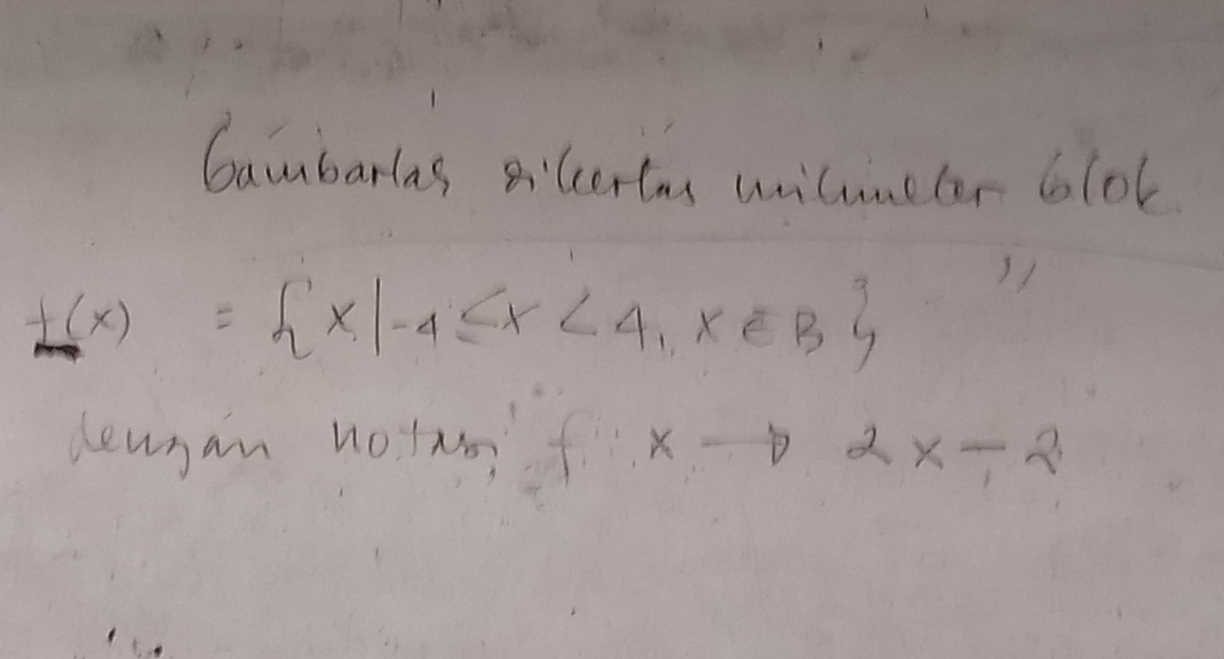 Gambarlas dikertas milimeter blok
f(x) = { x | -4 ≤ x < 4, x ∈ B } "
dengan notasi f : x → 2x - 2